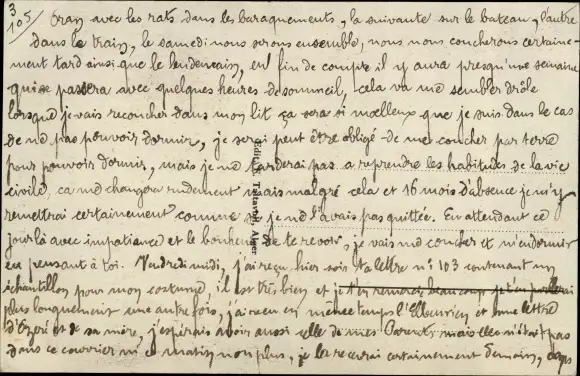 3
105
Oran avec les rats dans les baraquements, la suivante sur le bateau, l'autre
dans le train, le samedi nous serons ensemble, nous nous coucherons certaine-
ment tard ainsi que le lendemain, en fin de compte il y aura presqu'une semaine
qui se passera avec quelques heures de sommeil, cela va me sembler drôle
lorsque je vais recoucher dans mon lit ça sera si moelleux que je suis dans le cas
de ne pas pouvoir dormir, je serai peut être obligé de me coucher par terre
pour pouvoir dormir, mais je ne tarderai pas a reprendre les habitudes de la vie
civile, ça me changera rudement mais malgré cela et 16 mois d'absence je m'y
remettrai certainement comme si je ne l'avais pas quittée. En attendant ce
jour là avec impatience et le bonheur de te revoir, je vais me coucher et m'endormir
en pensant à toi. Vendredi midi, j'ai reçu hier soir ta lettre n° 103 contenant un
échantillon pour mon costume, il est très bien et je t'en remercie beaucoup je t'en parlerai
plus longuement une autre fois, j'ai reçu en même temps l'Elbeuvien et une lettre
et de sa mère, j'espérais avoir aussi celle de mes Parents mais elle n'était pas
dans ce courrier ni ce matin non plus, je la recevrai certainement demain,
Edit. Alger